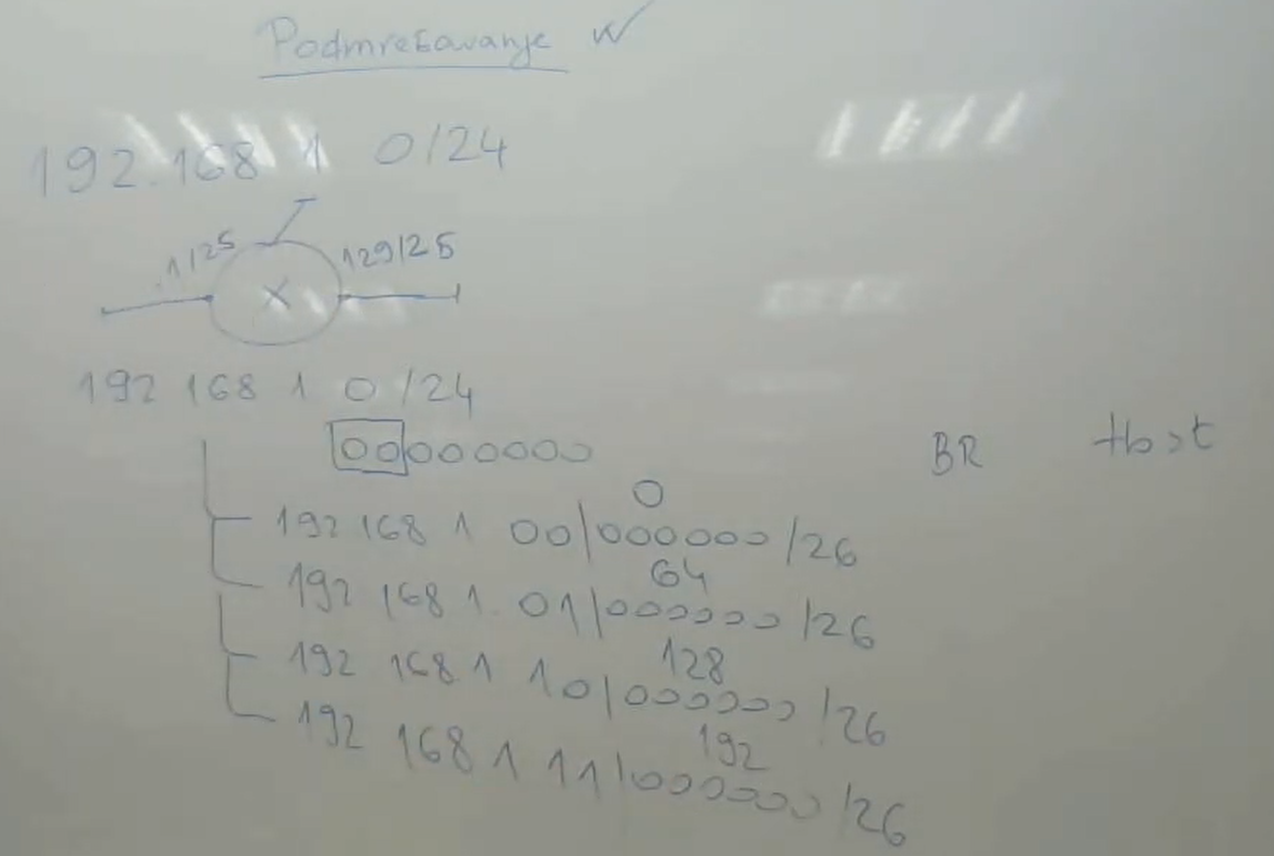 Podmrežavanje
192.168 1 0/24
.1/25 129/25
X
192 168 1 0/24
00000000
BR Host
0
192 168 1 00|000000 /26
64
192 168 1. 01|000000 /26
128
192 168 1 10|000000 /26
192
192 168 1 11|000000 /26